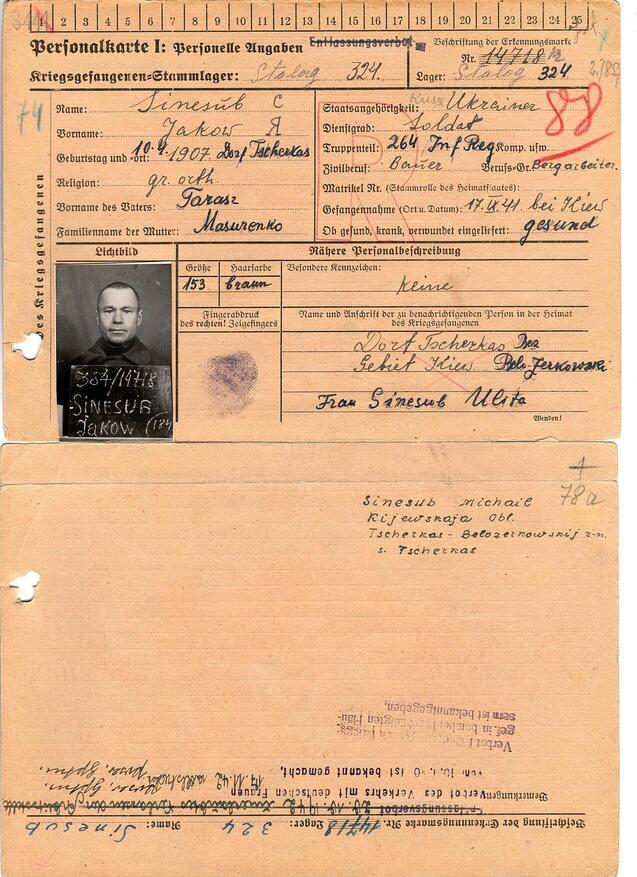 1 2 3 4 5 6 7 8 9 10 11 12 13 14 15 16 17 18 19 20 21 22 23 24 25
Personalkarte I: Personelle Angaben
Entlassungsverbot
Beschriftung der Erkennungsmarke
Nr. 14718
Kriegsgefangenen-Stammlager: Stalag 324.
Lager: Stalag 324
74
88
Des Kriegsgefangenen
Name: Sinesub С
Vorname: Jakow Я
Geburtstag und -ort: 10.4.1907. Dorf Tscherkas
Religion: gr. orth
Vorname des Vaters: Tarasz
Familienname der Mutter: Masurenko
Staatsangehörigkeit: Ukrainer
Dienstgrad: Soldat
Truppenteil: 264 Inf Reg Komp. usw.
Zivilberuf: Bauer Berufs-Gr. Bergarbeiter.
Matrikel Nr. (Stammrolle des Heimatstaates):
Gefangennahme (Ort u. Datum): 17.IX.41. bei Kiew
Ob gesund, krank, verwundet eingeliefert: gesund
Lichtbild
Nähere Personalbeschreibung
Größe
Haarfarbe
Besondere Kennzeichen:
153
braun
Keine
Fingerabdruck
des rechten! Zeigefingers
Name und Anschrift der zu benachrichtigenden Person in der Heimat
des Kriegsgefangenen
Dorf Tscherkas Bez
Gebiet Kiew Belo-Zerkowski
Frau Sinesub Ulita
Wenden!
384/14718
SINESUB
JAKOW (184
78a
Sinesub Michail
Kijewskaja Obl.
Tscherkas - Belozerkowskij r-n.
s. Tscherkas
Beschriftung der Erkennungsmarke Nr. 14718 Lager: 324 Name: Sinesub
Entlassungsverbot
Bemerkungen:
Verbot des Verkehrs mit deutschen Frauen
vom 10.1.40 ist bekannt gemacht,
sern ist bekanntgegeben,